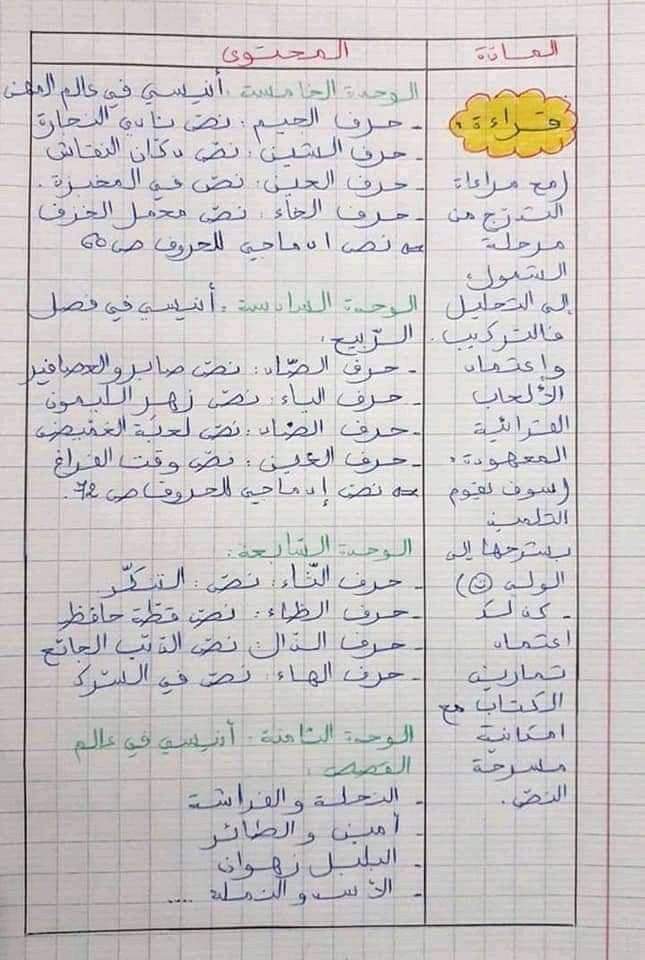 المادة
المحتوى
قراءة:
(مع مراعاة
التدرّج من
مرحلة
الشمول
إلى التحليل
فالتركيب.
وإعتماد
الألعاب
القرائية
المعهودة.
(سوف يقوم
التلميذ
بشرحها إلى
الولي ☺)
- كذلك
اعتماد
تمارين
الكتاب مع
امكانية
مسرحة
النص.
الوحدة الخامسة: أنيسي في عالم المهن
- حرف الجيم: نصّ نادي النجارة
- حرف الشين: نصّ دكّان النقاش
- حرف العين: نصّ في المخبزة.
- حرف الخاء: نصّ معمل الخزف
⇐ نصّ ادماجي للحروف ص 60
الوحدة السادسة: أنيسي في فصل
الرّبيع:
- حرف الصّاد: نصّ صابر والعصافير
- حرف الياء: نصّ زهر الليمون
- حرف الضاد: نصّ لعبة الغميض
- حرف الغين: نصّ وقت الفراغ
⇐ نصّ إدماجي للحروف ص 72.
الوحدة السّابعة:
- حرف الثّاء: نصّ: التنكّر
- حرف الظاء: نصّ قطّة حافظ
- حرف الذال: نصّ الذئب الجائع
- حرف الهاء: نصّ في السّرك
الوحدة الثامنة: أنيسي في عالم
القصص:
- النحلة والفراشة
- أمين والطائر
- البلبل زهوان
- الأسد والنملة ....